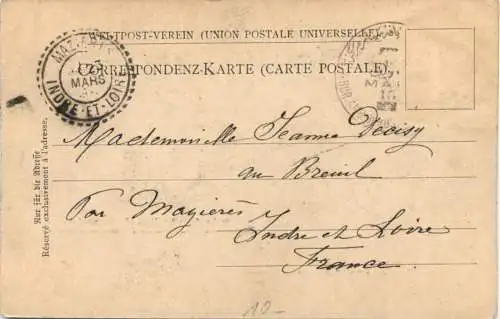 WELTPOST-VEREIN (UNION POSTALE UNIVERSELLE)
CORRESPONDENZ-KARTE (CARTE POSTALE)
MARS
INDRE-ET-LOIRE
Nur für die Adresse
Réservé exclusivement à l'adresse.
Mademoiselle Jeanne
au Breuil
Par Mazières
Indre et Loire
France
10-